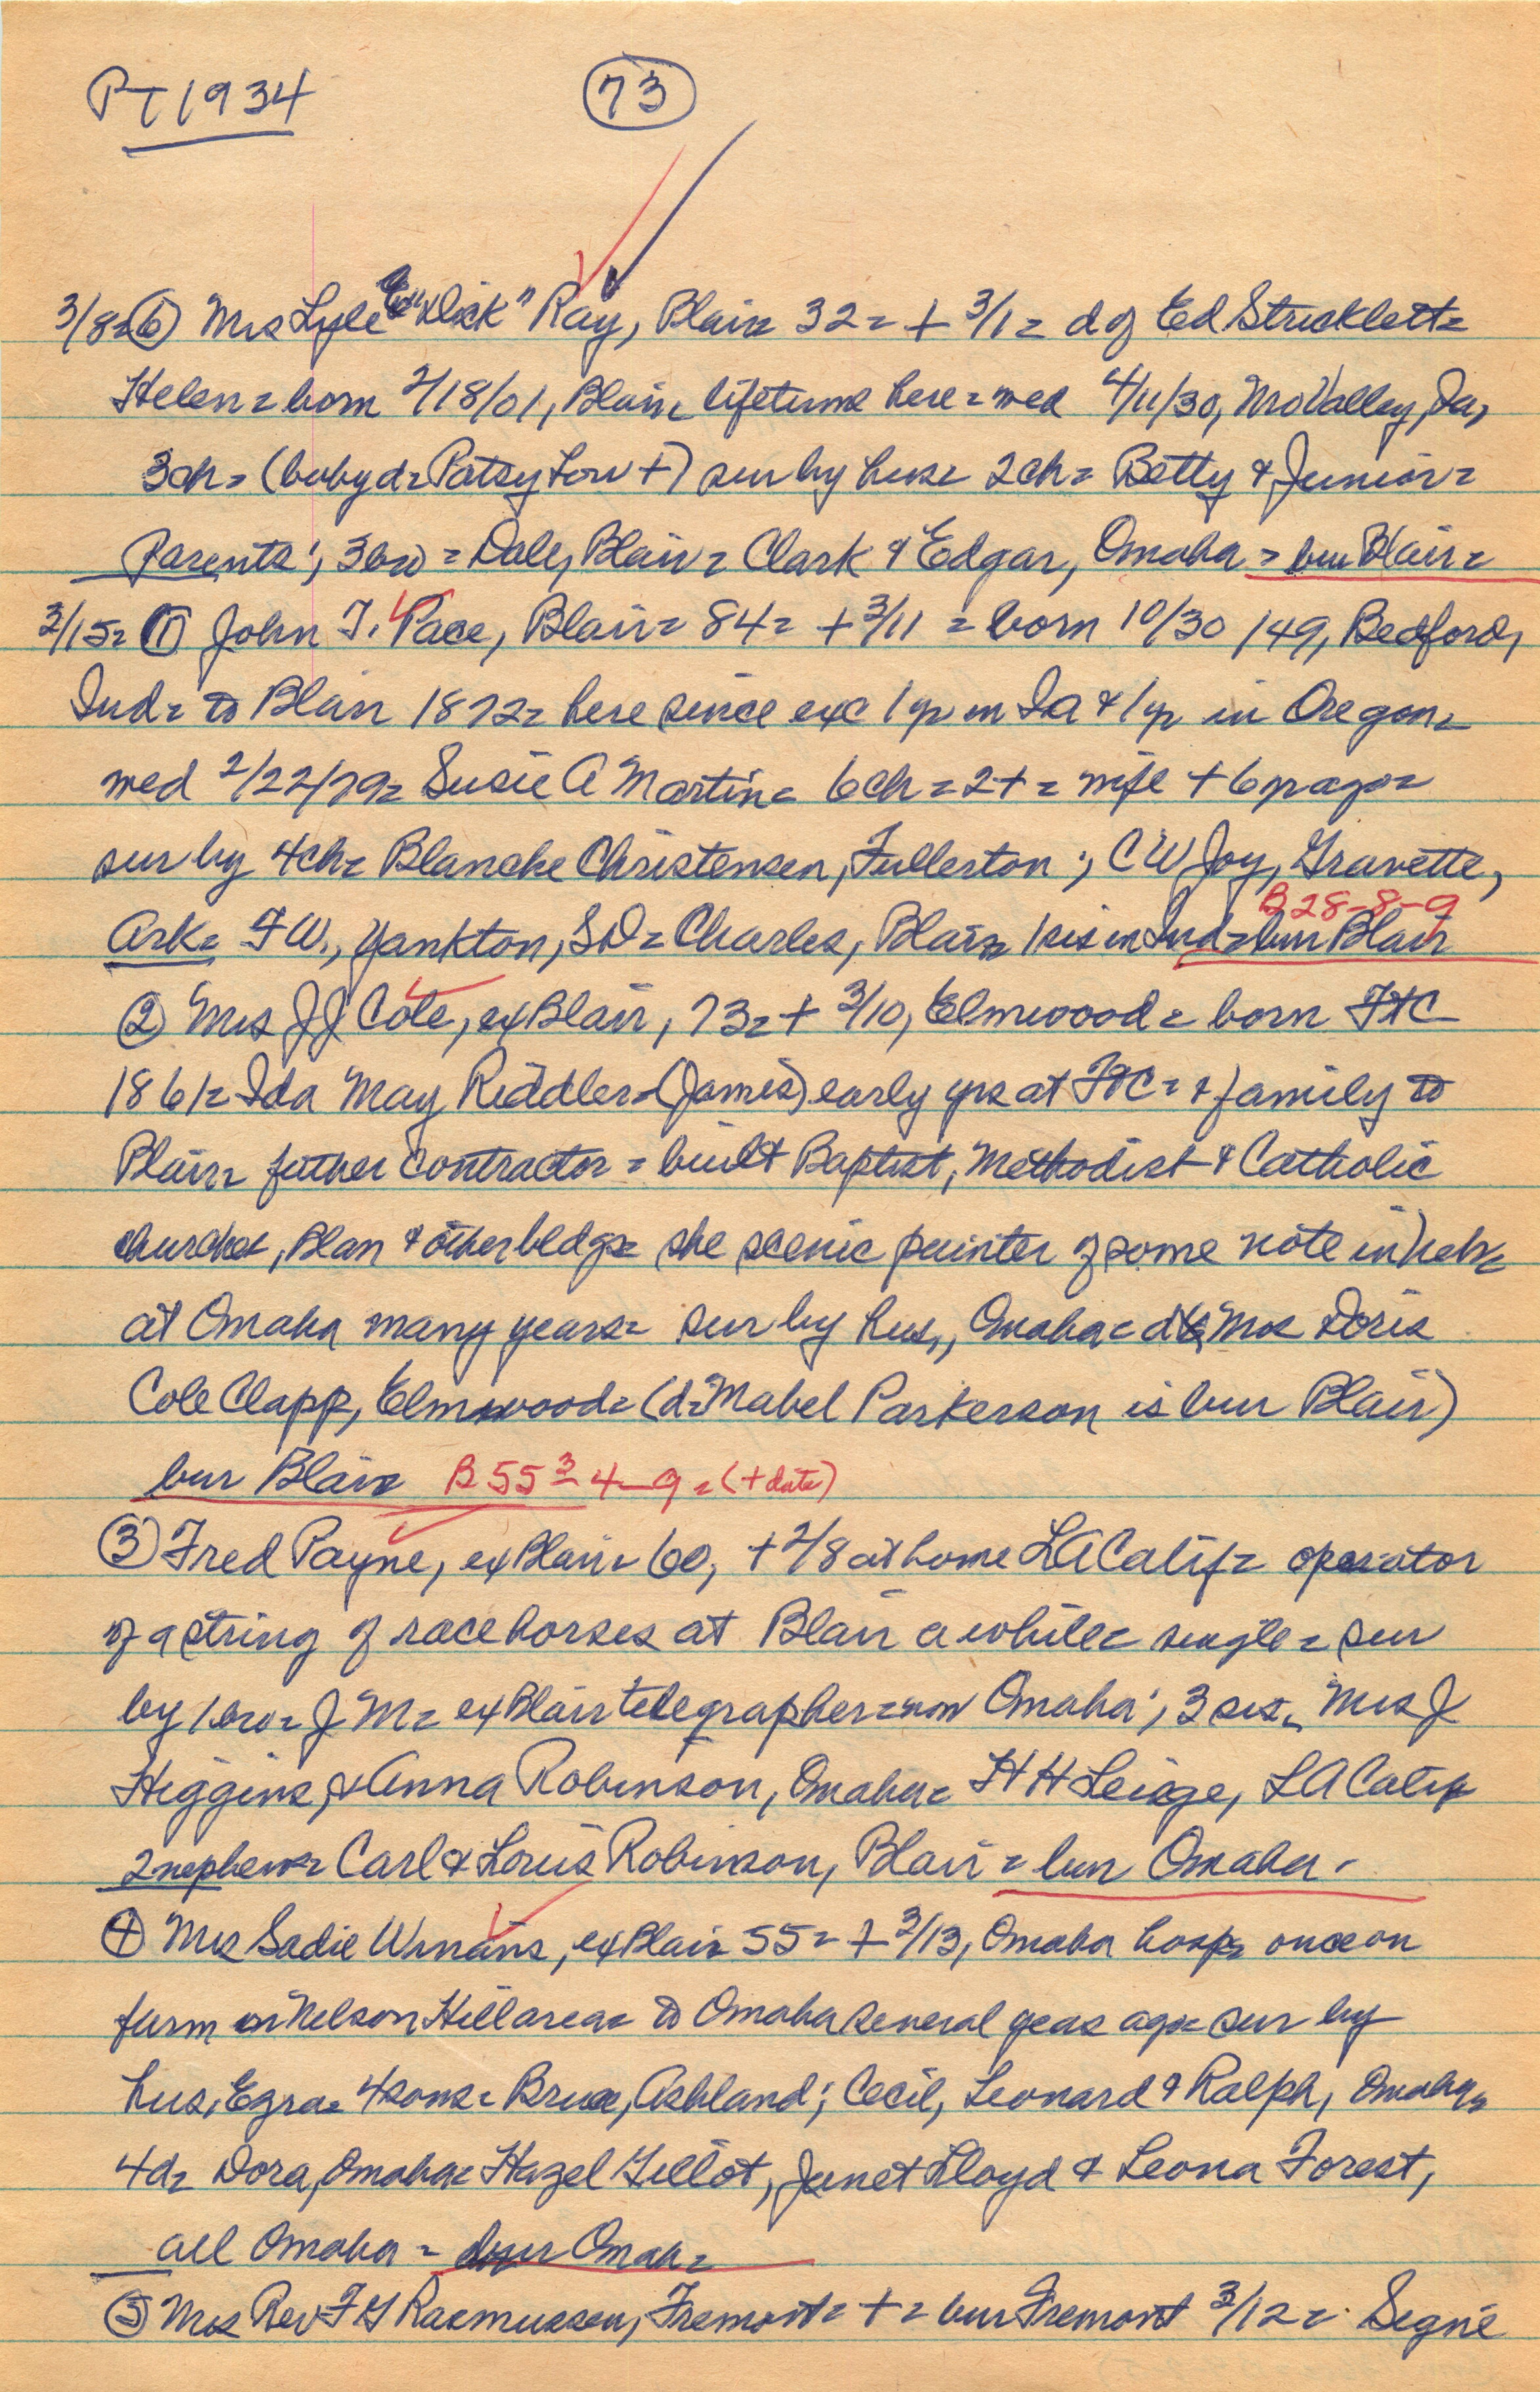 PT 1934
73
3/8= 6 Mrs Lyle "Dick" Ray, Blair 32= + 3/1= d of Ed Stricklett=
Helen= born 2/18/01, Blair= lifetime here= wed 4/11/30, MoValley, Ia,
3ch= (baby d= Patsy Lou +) sur by hus= 2ch= Betty & Junior=
parents; 3bro= Dale, Blair= Clark & Edgar, Omaha = bur Blair=
3/15= 1 John T. Pace, Blair= 84= + 3/11 = born 10/30/49, Bedford,
Ind= to Blair 1872= here since exc 1 yr in Ia & 1 yr in Oregon=
wed 2/22/79= Susie A Martin= 6ch = 2+ = wife + 6 yr ago=
sur by 4ch= Blanche Christensen, Fullerton; C W Joy, Gravette,
B 28-8-9
Ark= F W., Yankton, SD= Charles, Blair= 1 sis in Ind= bur Blair
2 Mrs J J Cole, ex Blair, 73= + 3/10, Elmwood= born FtC
1861= Ida May Riddler= (James) early yrs at FtC= & family to
Blair= father contractor = built Baptist, Methodist & Catholic
churches, Blair & other bldgs= she scenic painter of some note in Neb=
at Omaha many years= sur by hus,, Omaha= d Mrs Doris
Cole Clapp, Elmwood= (d= Mabel Parkerson is bur Blair)
bur Blair B 55 3 4-9 = (+ date)
3 Fred Payne, ex Blair= 60, + 2/8 at home LA Calif= operator
of a string of race horses at Blair a while= single= sur
by 1 bro= J M= ex Blair telegrapher= now Omaha; 3 sis= Mrs J
Higgins, & Anna Robinson, Omaha= H H, LA Calif
2 nephews= Carl & Louis Robinson, Blair = bur Omaha.
4 Mrs Sadie Winans, ex Blair= 55= + 3/13, Omaha hosp= once on
farm in Nelson Hill area= to Omaha several yeas ago= sur by
hus, Ezra= 4 sons= Bruce, Ashland; Cecil, Leonard & Ralph, Omaha=
4d= Dora, Omaha= Hazel Gillot, Janet Lloyd & Leona Forest,
all Omaha = bur Omah=
5 Mrs Rev F G Rasmussen, Fremont= + = bur Fremont 3/12= Segne